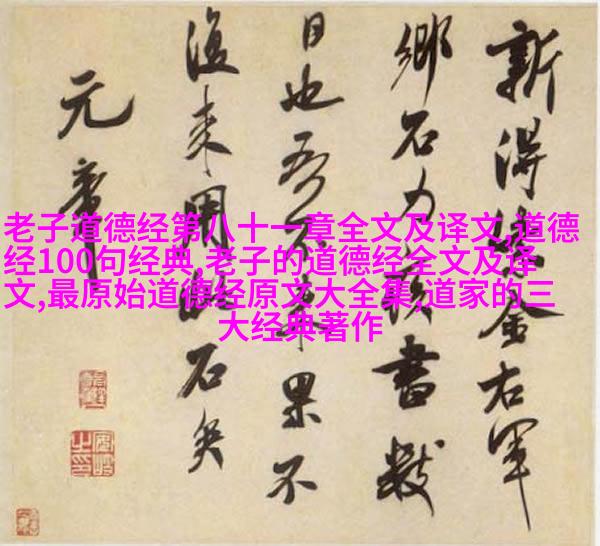 新得紫金右軍
鄉石力疾書數
日也吾不來果不
復來用此石矣
元章
老子道德经第八十一章全文及译文,道德
经100句经典,老子的道德经全文及译
文,最原始道德经原文大全集,道家的三
大经典著作